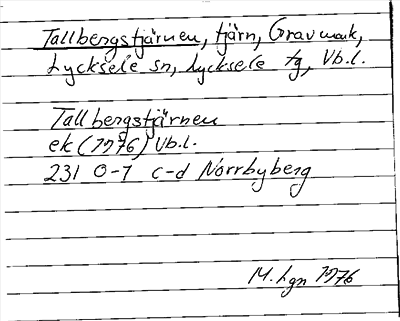 Tallbergstjärnen, tjärn, Gravmark,
Lycksele sn, Lycksele tg, Vb.l.
Tallbergstjärnen
ek (1976) Vb.l.
231 0-1 c-d Norrbyberg
M. Lgn 1976